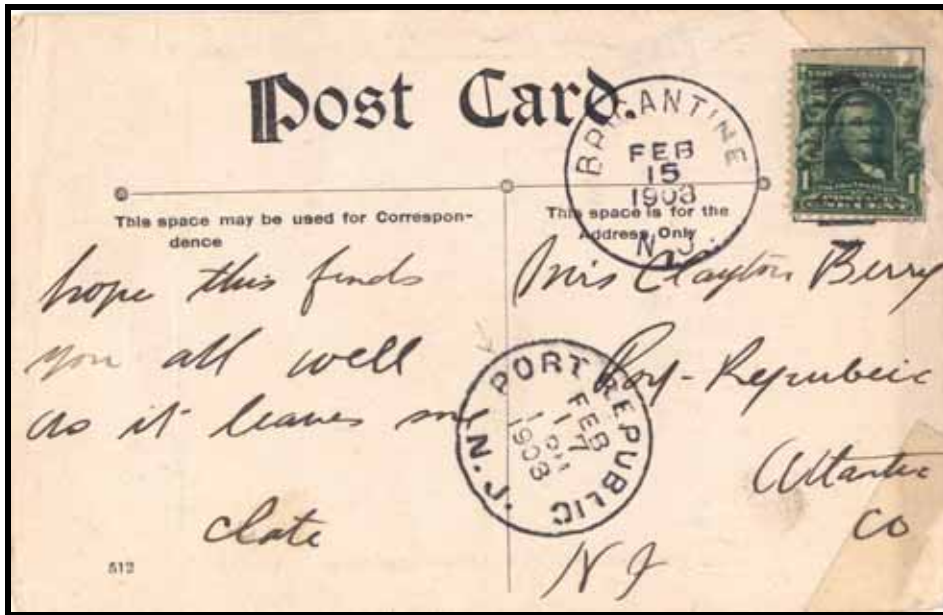 Post Card.
BRIGANTINE
FEB
15
1908
N.J.
This space may be used for Correspon-
dence
This space is for the
Address Only
hope this finds
you all well
as it leaves me
Clate
Mrs Clayton Berry
Port-Republic
Atlantic
Co
N J
PORT REPUBLIC
FEB
17
PM
1908
N.J.
1 1
512